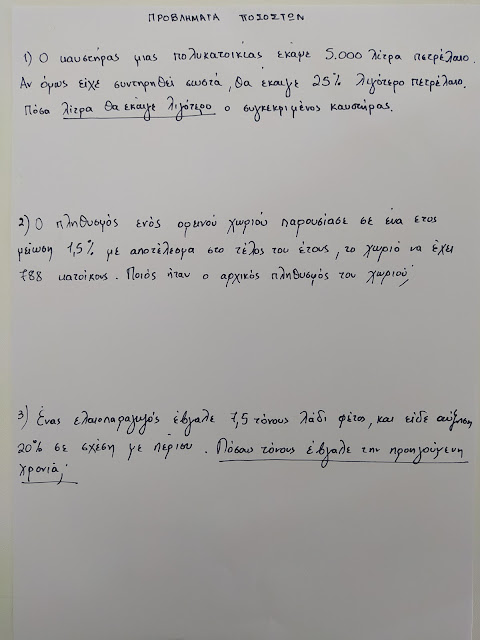 ΠΡΟΒΛΗΜΑΤΑ ΠΟΣΟΣΤΩΝ
1) Ο καυστήρας μιας πολυκατοικίας έκαψε 5.000 λίτρα πετρέλαιο.
Αν όμως είχε συντηρηθεί σωστά, θα έκαιγε 25% λιγότερο πετρέλαιο.
Πόσα λίτρα θα έκαιγε λιγότερο ο συγκεκριμένος καυστήρας.
2) Ο πληθυσμός ενός ορεινού χωριού παρουσίασε σε ένα έτος
μείωση 1,5% με αποτέλεσμα στο τέλος του έτους, το χωριό να έχει
788 κατοίκους. Ποιός ήταν ο αρχικός πληθυσμός του χωριού;
3) Ένας ελαιοπαραγωγός έβγαλε 7,5 τόνους λάδι φέτος, και είδε αύξηση
20% σε σχέση με πέρισυ. Πόσους τόνους έβγαλε την προηγούμενη
χρονιά;